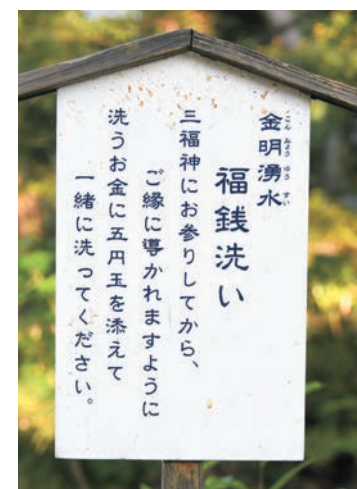 金明湧水
ごんみょうゆうすい
福銭洗い
三福神にお参りしてから、
ご縁に導かれますように
洗うお金に五円玉を添えて
一緒に洗ってください。